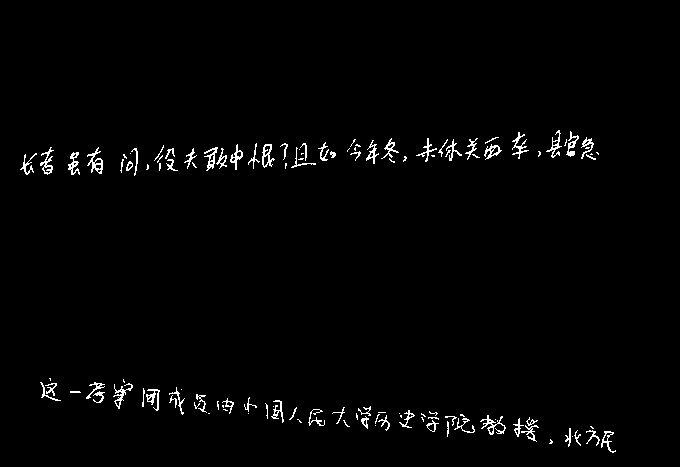 长者虽有问，役夫敢申恨？且如今年冬，未休关西卒，县官急
这一考察团成员由中国人民大学历史学院教授，北方民